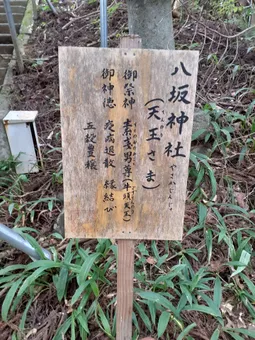 八坂神社
やさかじんじゃ
（天王さま）
御祭神 素戔嗚男尊（牛頭天王）
御神徳 疫病退散 縁結び
五穀豊穣